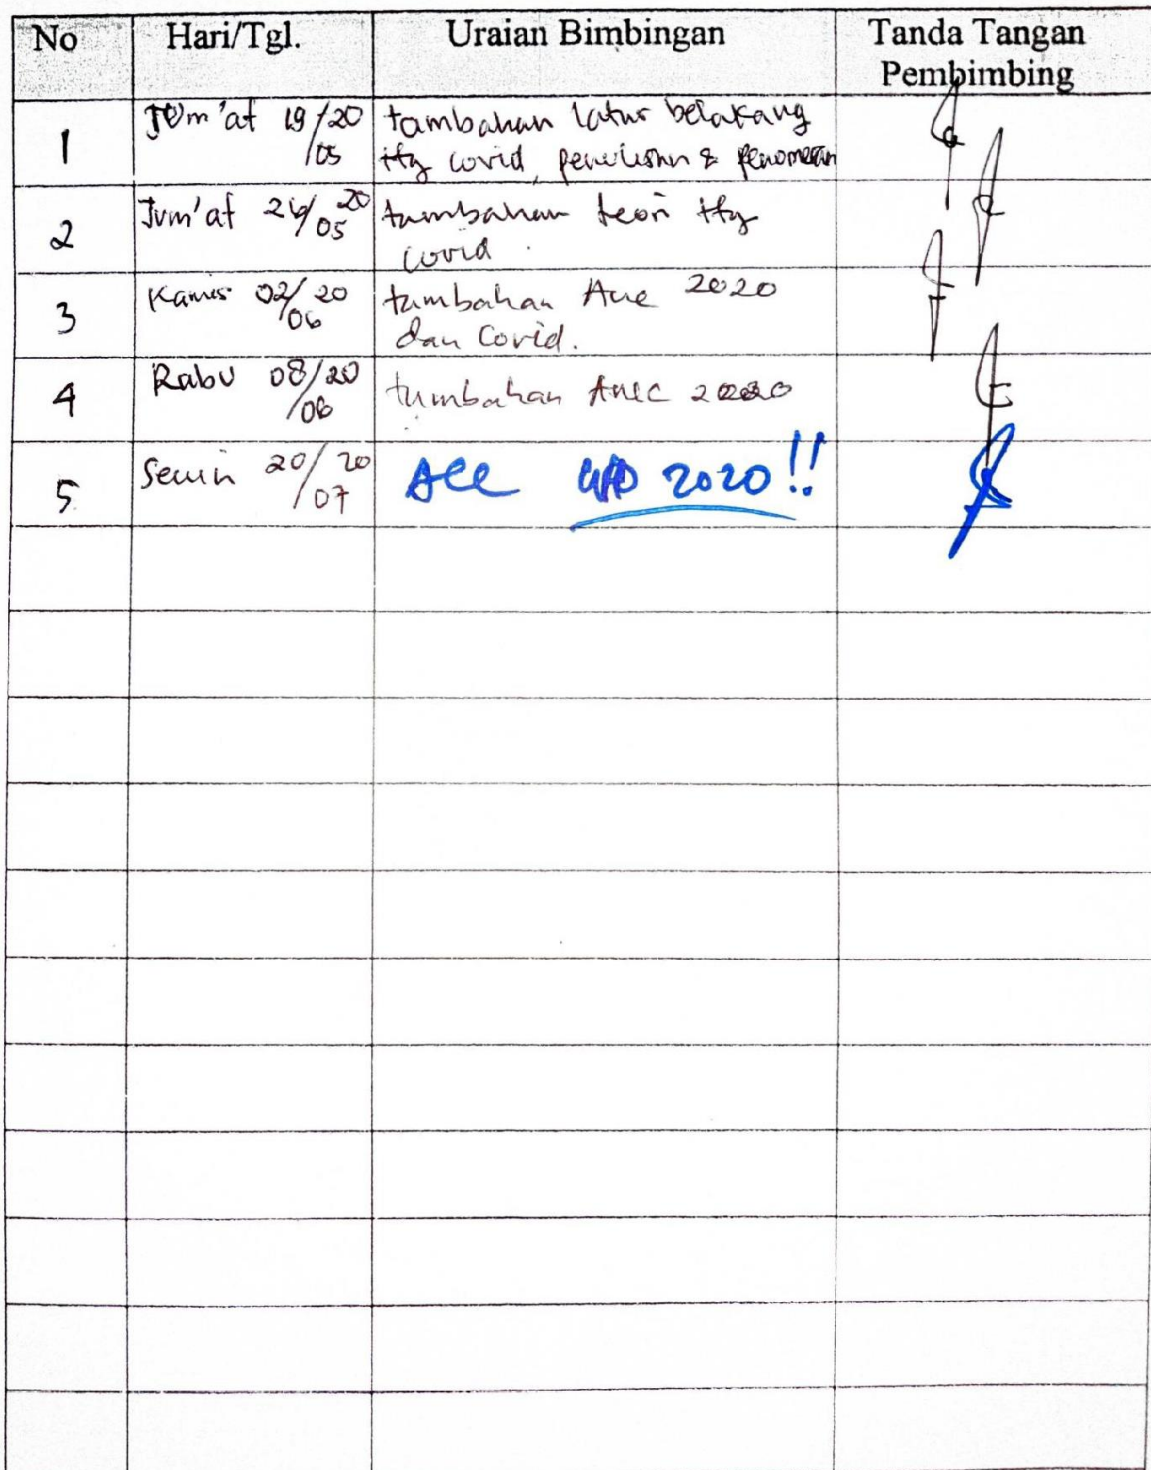 No Hari/Tgl. Uraian Bimbingan Tanda Tangan
Pembimbing
1 Jum'at 19/20 tambahan latar belakang
/05 ttg covid, penulisan & penomoran
2 Jum'at 26/05 20 tambahan teori ttg
covid
3 Kamis 02/20 tambahan 2020
/06 dan Covid.
4 Rabu 08/20 tambahan
/06
5 Senin 20/20 Acc 2020!!
/07